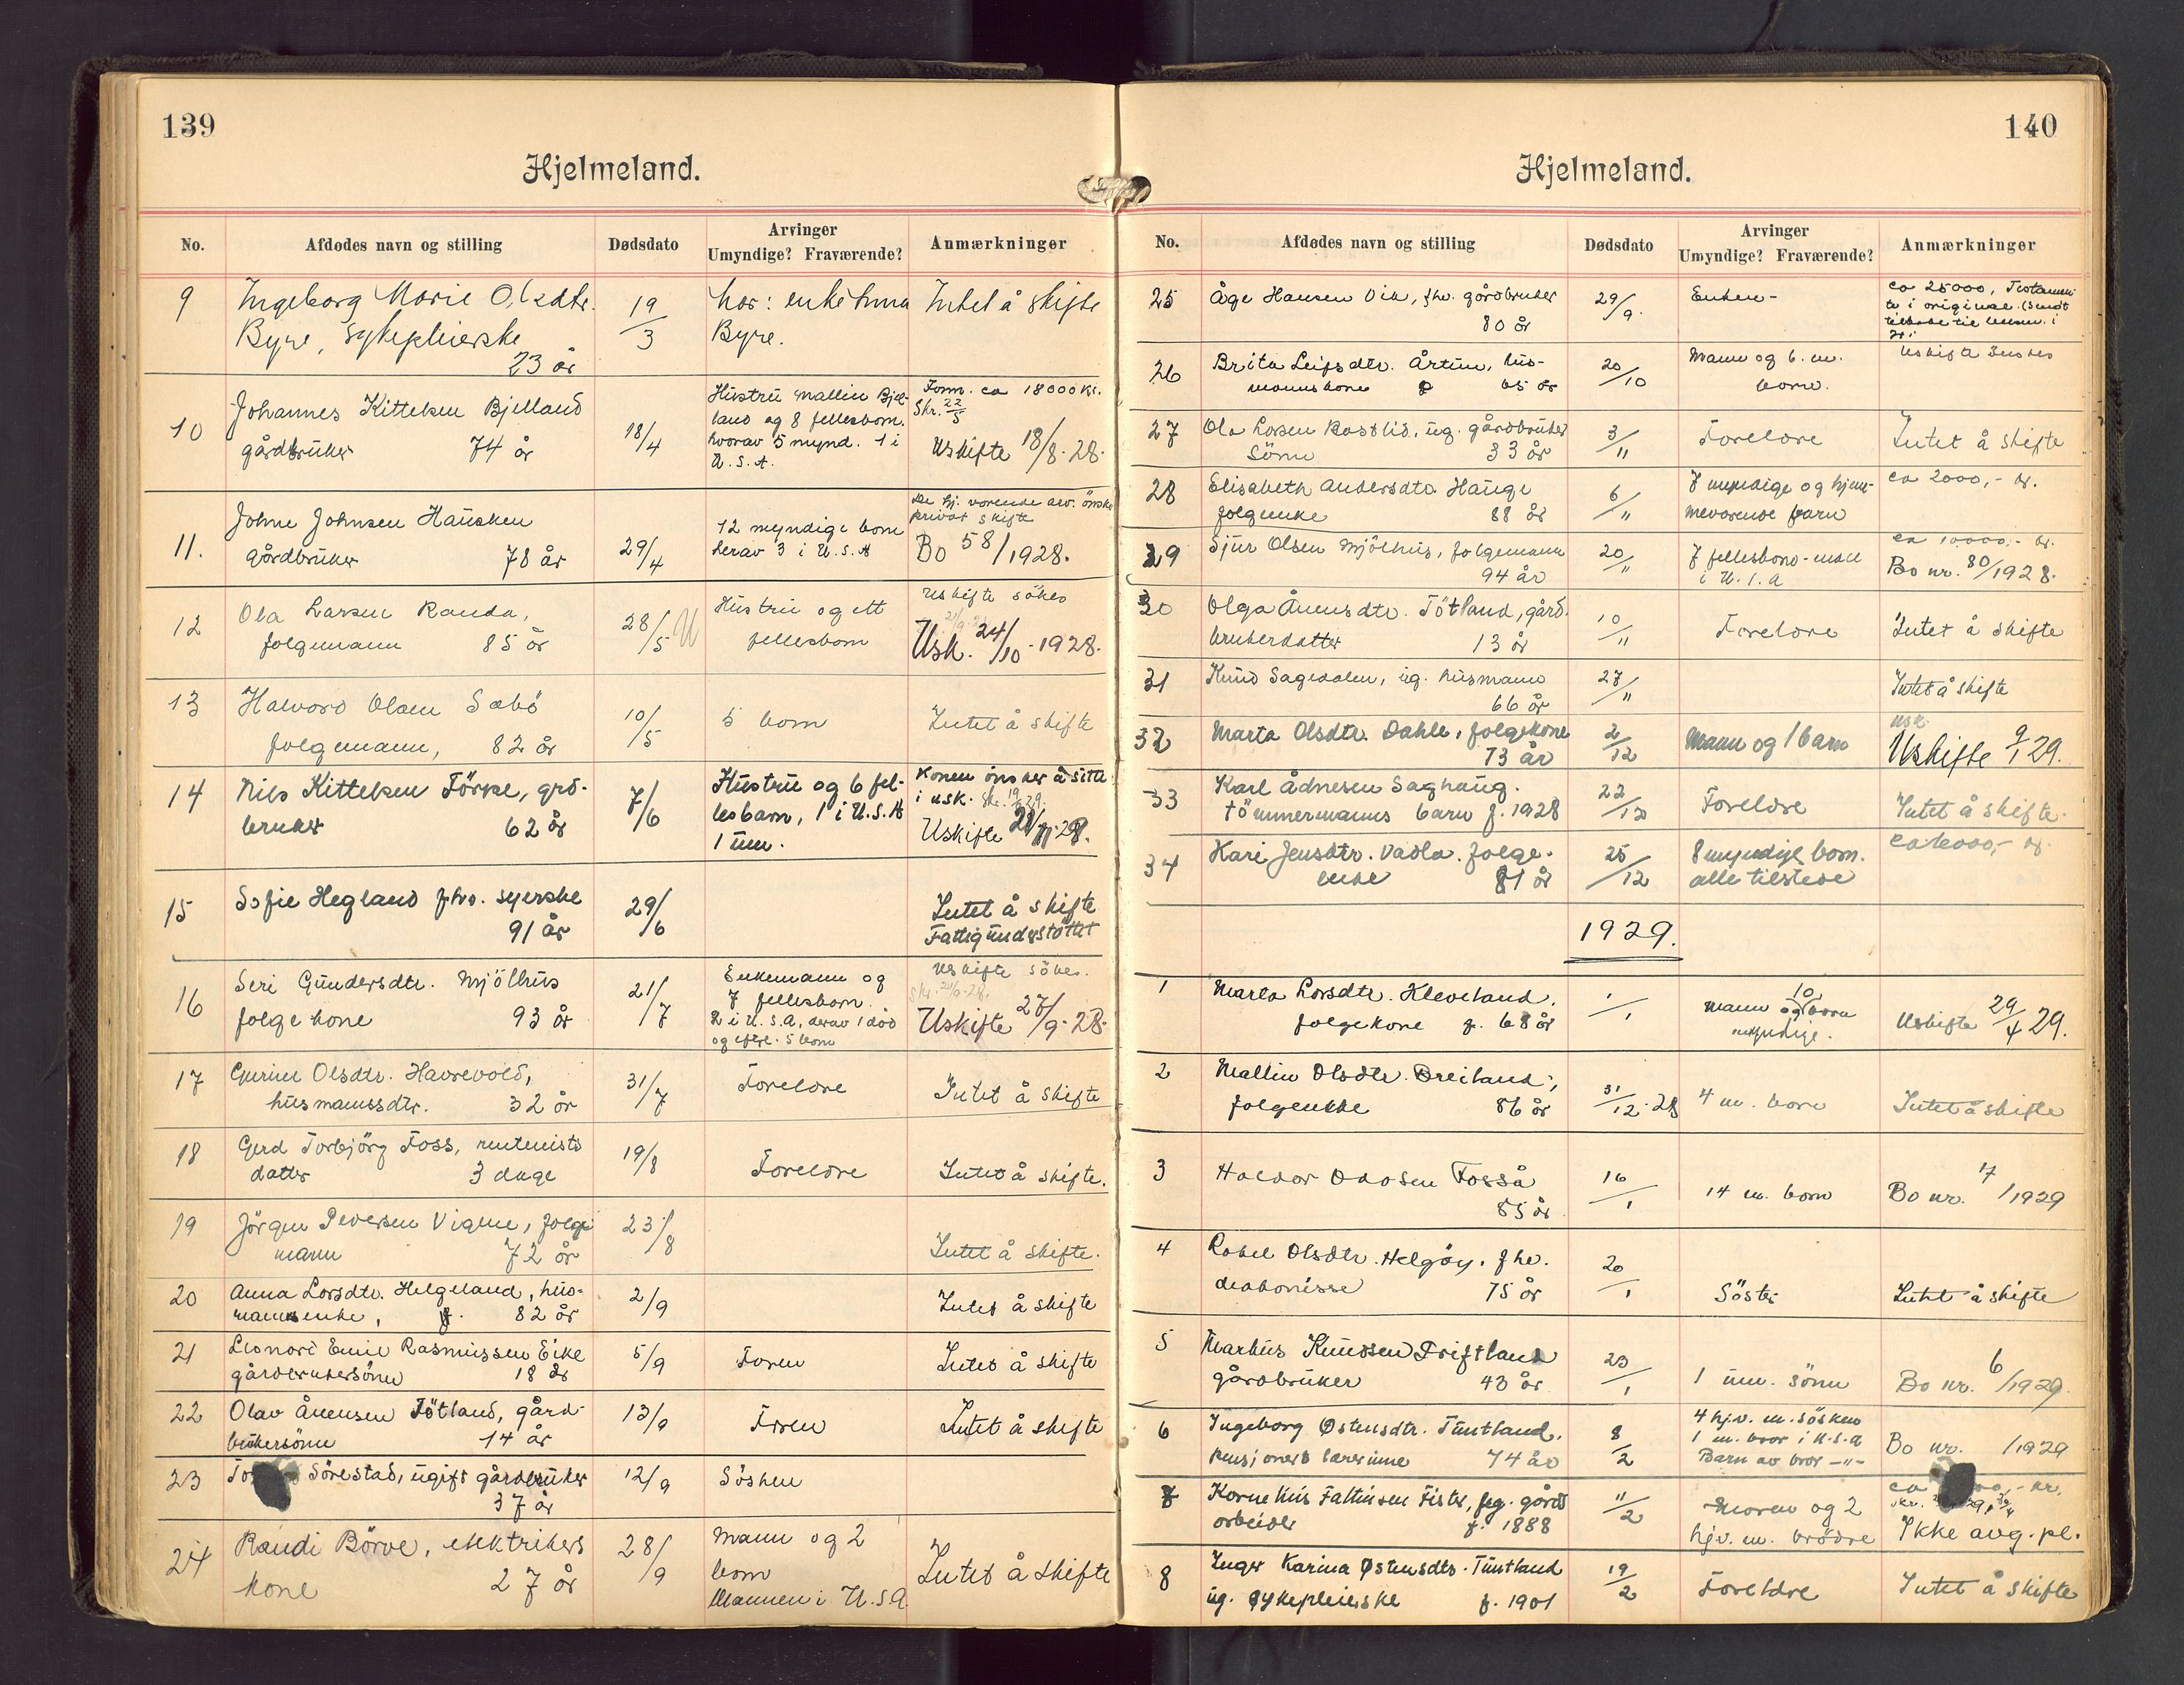 139
Hjelmeland.
No. Afdødes navn og stilling Dødsdato Arvinger Umyndige? Fraværende? Anmærkninger
9 Ingeborg Marie Olsdtr. 19/3 Intet å skifte
Byre, sykepleierske Byre.
23 år
10 Johannes Kittelsen Bjelland 18/4 Hustru Mallin Bjel- Form. ca 18000 kr.
gårdbruker 74 år land og 8 fellesbarn. Skr. 22/5
hvorav 5 mynd. 1 i Uskifte 18/8.28.
U.S.A.
11. Johne Johnsen Hausken 29/4 12 myndige born De hj. værende arv. ønsker
gårdbruker 78 år herav 3 i U.S.A privat skifte
Bo 58/1928.
12 Ola Larsen Randa, 28/5 Hustru og ett Uskifte sökes
folgemann 85 år fellesborn Usk. 24/10-1928.
13 Halvord Olsen Sæbö 10/5 5 born Intet å skifte
folgemann, 82 år
14 Nils Kittelsen Förre, grd- 7/6 Hustru og 6 fel- Konen önsker å sitte
bruker 62 år lesbarn, 1 i U.S.A i usk.
1 um. Uskifte
15 Sofie Hegland fhv. syerske 29/6 Intet å skifte
91 år Fattigunderstöttet
16 Seri Gundersdtr. Mjölhus 21/7 Enkemann og Uskifte sökes.
folgekone 93 år 7 fellesborn.
2 i U.S.A, derav 1 död Uskifte 27/9-28.
og efterl. 5 born
17 Gurine Olsdtr. Havrevold, 31/7 Foreldre Intet å skifte
husmannsdtr. 32 år
18 Gerd Torbjörg Foss, rentenists 19/8 Foreldre Intet å skifte.
datter 3 dage
19 Jörgen Pedersen Vigene, folge 23/8 Intet å skifte.
mann 72 år
20 Anna Larsdtr. Helgeland, hus- 2/9 Intet å skifte
mannsenke, f. 82 år
21 Leonard Emil Rasmussen Eike 5/9 Foren Intet å skifte
gårdbrukersönn 18 år
22 Olav Ånensen Tötland, gård- 13/9 Foren Intet å skifte
brukersönn 14 år
23 Sörestad, ugift gårdbruker 12/9 Söshen
37 år
24 Randi Börve, elektrikers 28/9 Mann og 2 Intet å skifte
kone 27 år born
Mannen i U.S.A.
140
Hjelmeland.
No. Afdødes navn og stilling Dødsdato Arvinger Umyndige? Fraværende? Anmærkninger
25 Åge Hansen Vik, fhv. gårdbruker 29/9. Enken - ca 25000, Testamen-
80 år te i original. (Sendt
tilbake til lensm. i
26 Brita Leifsdtr. Årtun, hus- 20/10 Mann og 6. m. Uskifte önskes
mannskone 65 år born.
27 Ola Larsen Bastlid, ug. gårdbruker 3/11 Foreldre Intet å skifte
Sönn 33 år
28 Elisabeth Andersdtr. Hauge 6/11 7 myndige og hjem- ca 2000,- kr.
folgenke 88 år meværende barn
29 Sjur Olsen Mjölhus, folgemann 20/11 7 fellesborn - ca 10000.- kr.
94 år i U.S.A Bo nr. 80/1928.
30 Olga Ånensdtr. Tötland, gård- 10/11 Foreldre Intet å skifte
brukerdatter 13 år
31 Knud Sagedalen, ug. husmann 27/11 Intet å skifte
66 år
32 Marta Olsdtr. Dahle, folgekone 2/12 Mann og 1 barn usk.
73 år Uskifte 9/1 29.
33 Karl Ådnesen Saghaug. 22/12 Foreldre Intet å skifte.
tömmermanns barn f. 1928
34 Kari Jensdtr. Vadla. folge- 25/12 8 myndige born.
enke 81 år alle tilstede
1929.
1 Marta Larsdtr. Kleveland. 1/1 Mann og 10 born Uskifte 29/4 29.
folgekone f. 68 år myndige.
2 Mallin Olsdtr. Breiland, 31/12.28 4 m. born Intet å skifte
folgeenke 86 år
3 Haldor Fosså 16/1 14 m. born Bo nr. 17/1929
85 år
4 Rakel Olsdtr. Helgöy, fhv. 20/1 Söster Intet å skifte
diakonisse 75 år
5 Markus Knudsen Triftland 23/1 1 um. sönn Bo nr. 6/1929.
gårdbruker 43 år
6 Ingeborg Østensdtr. Tuntland. 8/2 4 hjv. m. söskenn Bo nr. /1929
pensjonert lærerinne 74 år 1 m. bror i U.S.A
Barn av bror -"-
7 Kornelius Fattinsen Fister, feg. gårds 11/2 Moren og 2 kr.
arbeider f. 1888 hjv. m. brödre Ikke avg.pl.
8 Inger Karina Østensdtr. Tuntland 19/2 Foreldre Intet å skifte
ug. sykepleierske f. 1901